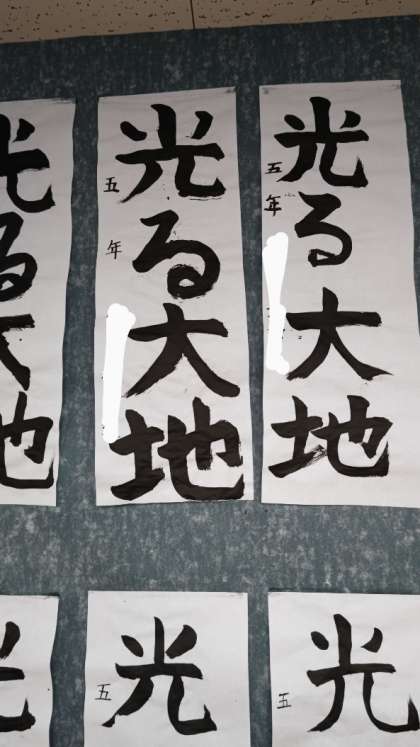 光る大地
五年
光る大地
五年
光る大地
光
五
光
五
光